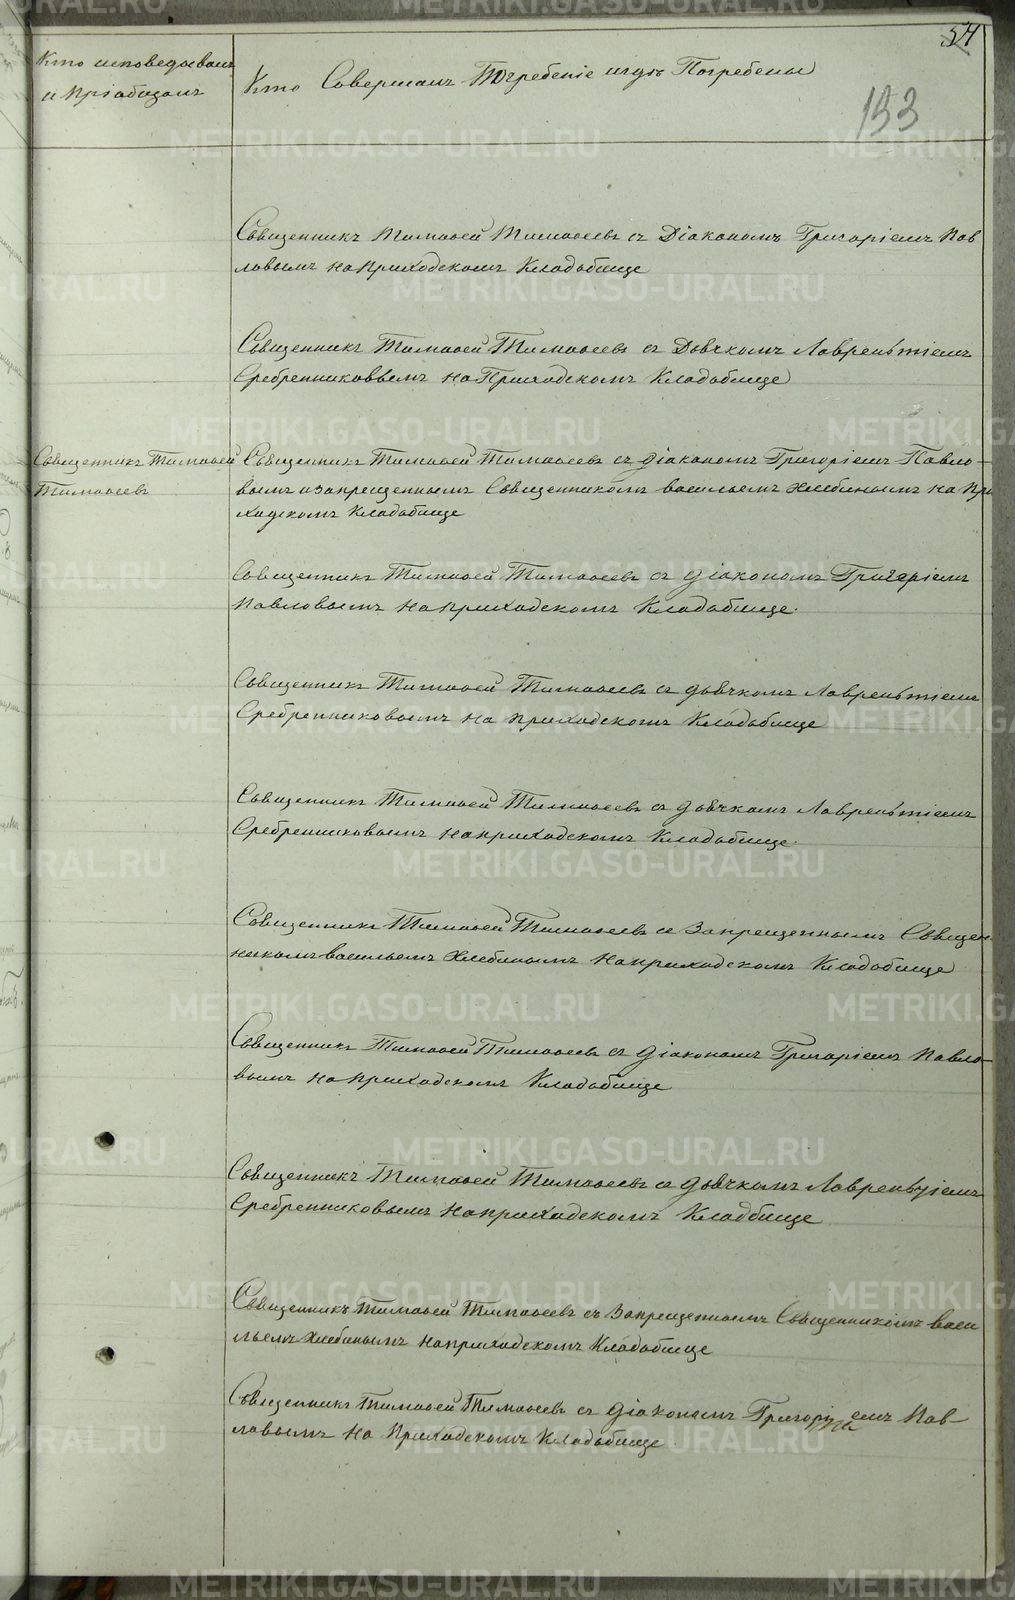 54
193
Кто исповедывалъ
и пріобщалъ
Кто Совершалъ Погребеніе и гдѣ Погребены
Священникъ Тимофей Тимофеевъ съ Діакономъ Григоріемъ Пав
ловымъ на приходскомъ Кладбище
Священникъ Тимофей Тимофеевъ съ Дьячкомъ Лаврентіемъ
Сребренниковымъ на Приходскомъ Кладбище
Священникъ Тимофей
Тимофеевъ
Священникъ Тимофей Тимофеевъ съ діакономъ Григоріемъ Павло-
вымъ и запрещеннымъ Священникомъ васильемъ Хлебинымъ на При
ходскомъ Кладбище
Священникъ Тимофей Тимофеевъ съ діакономъ Григоріемъ
Павловымъ на приходскомъ Кладбище.
Священникъ Тимофей Тимофеевъ съ дьячкомъ Лаврентіемъ
Сребренниковымъ на приходскомъ Кладбище
Священникъ Тимофей Тимофеевъ съ дьячкомъ Лаврентіемъ
Сребренниковымъ на приходскомъ Кладбище.
Священникъ Тимофей Тимофеевъ съ Запрещеннымъ Священ
никомъ васильемъ Хлебинымъ на приходскомъ Кладбище
Священникъ Тимофей Тимофеевъ съ діакономъ Григоріемъ Павло-
вымъ на приходскомъ Кладбище
Священникъ Тимофей Тимофеевъ съ дьячкомъ Лаврентіемъ
Сребренниковымъ на приходскомъ Кладбище
Священникъ Тимофей Тимофеевъ съ Запрещеннымъ Священникомъ васи
льемъ Хлебинымъ на приходскомъ Кладбище
Священникъ Тимофей Тимофеевъ съ діакономъ Григоріемъ Пав-
ловымъ на приходскомъ Кладбище
METRIKI.GASO-URAL.RU